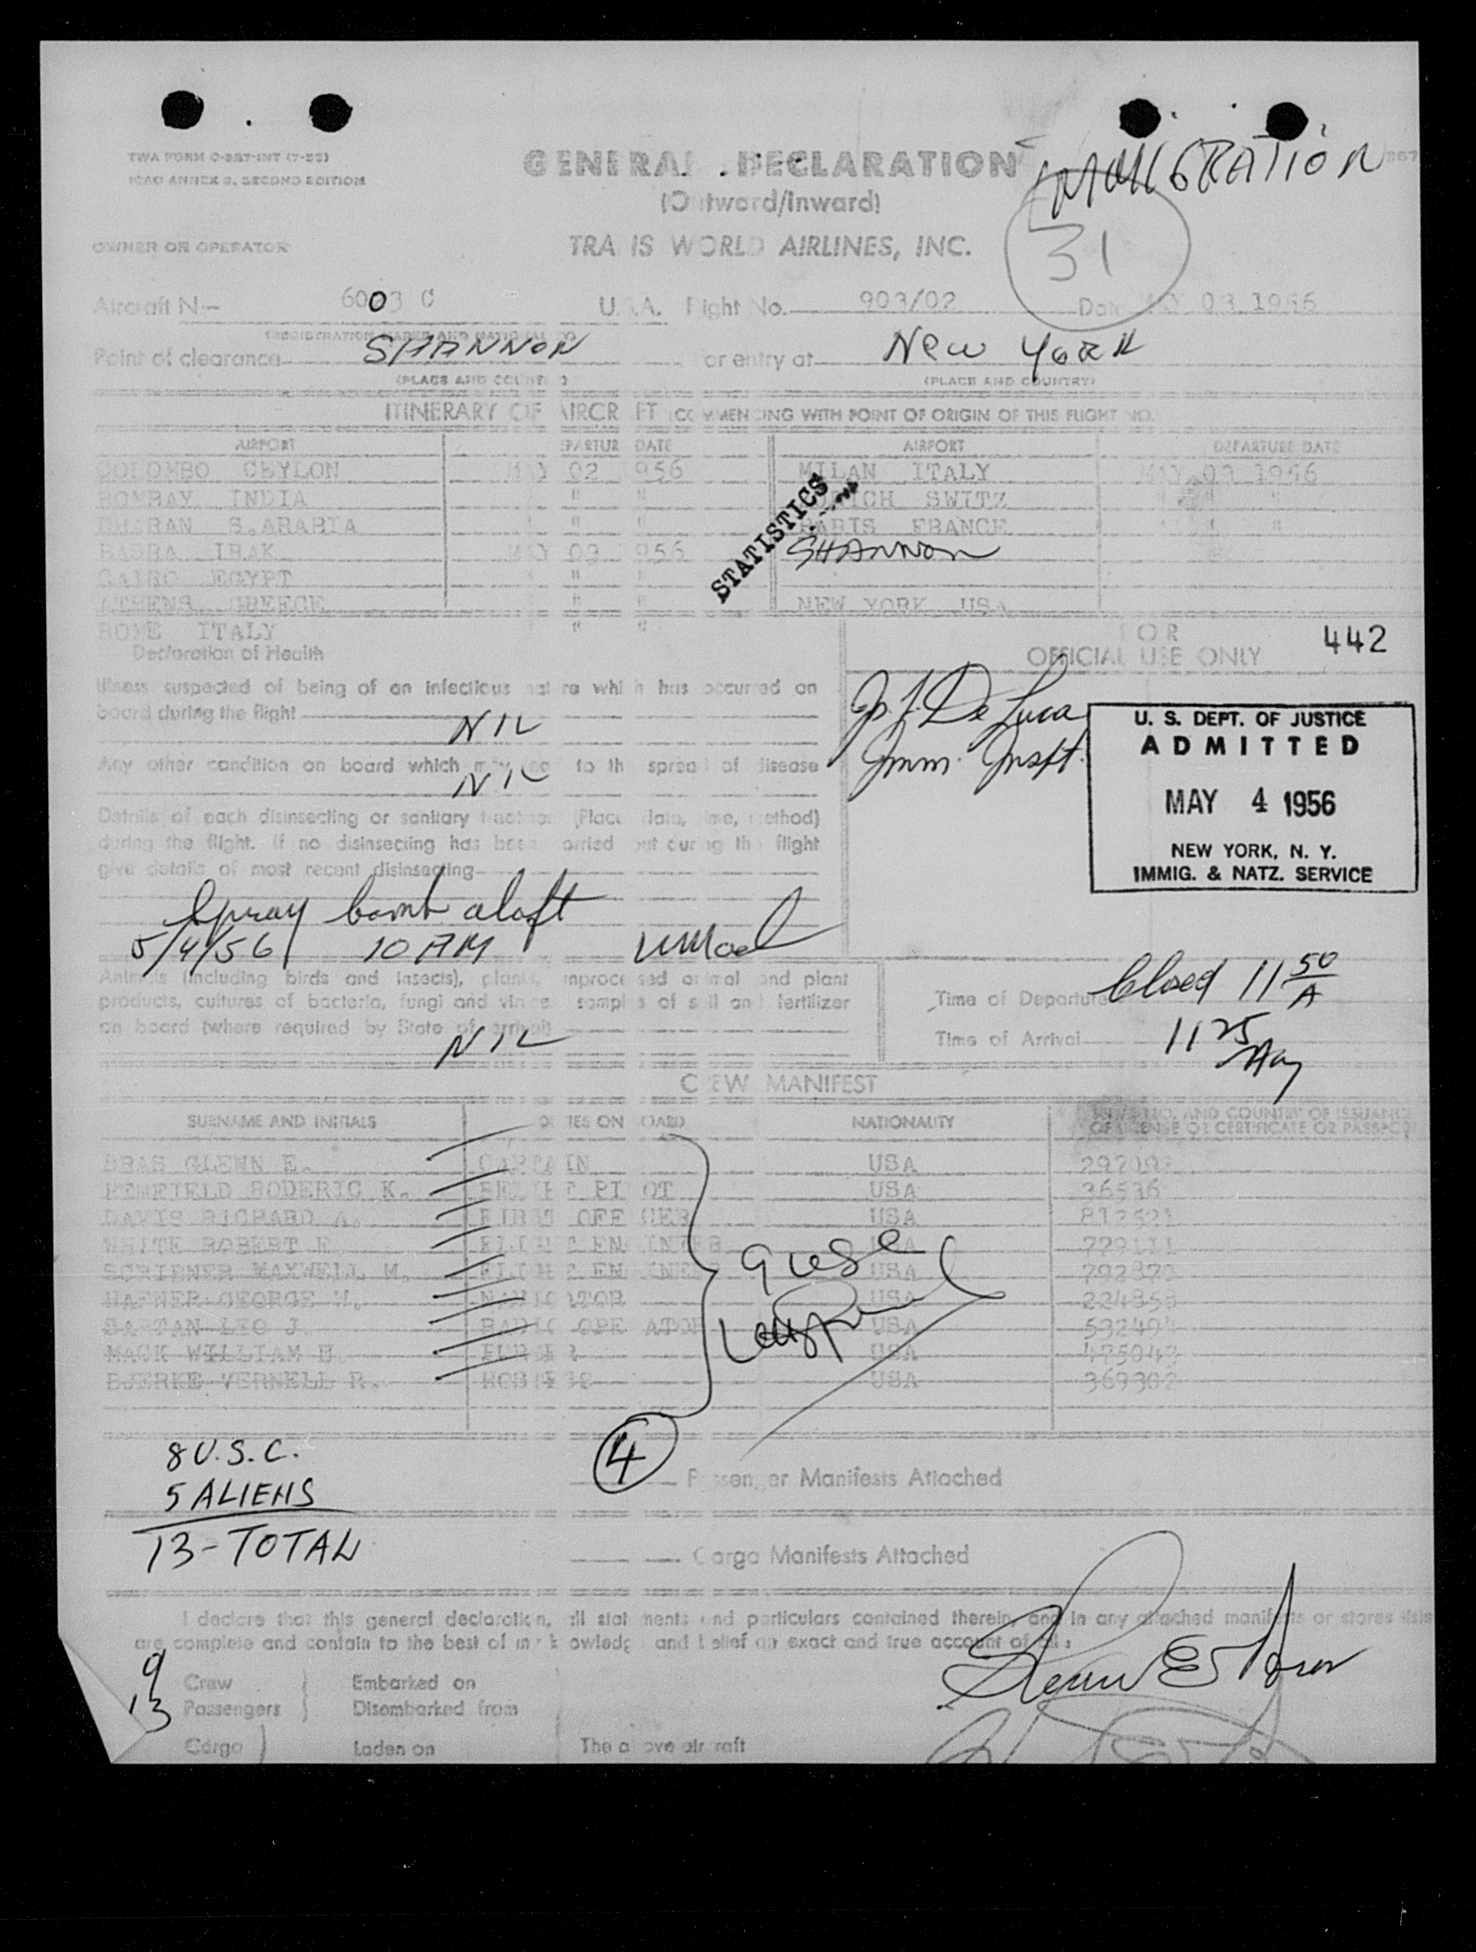 TWA FORM C-887-INT (7-55)
ICAO ANNEX 9, SECOND EDITION
GENERAL DECLARATION
IMMIGRATION
(Outward/Inward)
31
OWNER OR OPERATOR
TRANS WORLD AIRLINES, INC.
Aircraft N— 6003 C U.S.A. Flight No. 903/02 Date MAY 03 1956
(REGISTRATION MARKS AND NATIONALITY)
Point of clearance SHANNON For entry at New YORK
(PLACE AND COUNTRY) (PLACE AND COUNTRY)
ITINERARY OF AIRCRAFT (COMMENCING WITH POINT OF ORIGIN OF THIS FLIGHT NO.
AIRPORT DEPARTURE DATE AIRPORT DEPARTURE DATE
COLOMBO CEYLON MAY 02 1956 MILAN ITALY MAY 03 1956
BOMBAY INDIA " " ZURICH SWITZ " "
DHARAN S.ARABIA " " PARIS FRANCE " "
BASRA IRAK MAY 03 1956 SHANNON
CAIRO EGYPT " "
ATHENS GREECE " " NEW YORK USA
ROME ITALY " "
STATISTICS
FOR
OFFICIAL USE ONLY
442
Declaration of Health
Illness suspected of being of an infectious nature which has occurred on
board during the flight
NIL
Any other condition on board which may lead to the spread of disease
NIL
J. J. De Luca
Imm. Inspt.
U. S. DEPT. OF JUSTICE
ADMITTED
MAY 4 1956
NEW YORK, N. Y.
IMMIG. & NATZ. SERVICE
Details of each disinsecting or sanitary treatment (Place, date, time, method)
during the flight. If no disinsecting has been carried out during the flight
give details of most recent disinsecting
Spray bomb aloft
5/4/56 10 AM
Animals (including birds and insects), plants, unprocessed animal and plant
products, cultures of bacteria, fungi and viruses, samples of soil and fertilizer
on board (where required by State of arrival)
NIL
Time of Departure Closed 11 50 A
Time of Arrival 11 25
CREW MANIFEST
SURNAME AND INITIALS DUTIES ON BOARD NATIONALITY NO. AND COUNTRY OF ISSUANCE
OF LICENSE OR CERTIFICATE OR PASSPORT
GLENN E. CAPTAIN USA
PENFIELD RODERIC K. RELIEF PILOT USA 36536
DAVIS RICHARD A. FIRST OFFICER USA
WHITE ROBERT E. FLIGHT ENGINEER USA
SCRIBNER MAXWELL M. FLIGHT ENGINEER USA
HAFNER GEORGE W. NAVIGATOR USA
LEO J. RADIO OPERATOR USA
MACK WILLIAM H. PURSER USA
BJERKE VERNELL R. HOSTESS USA 369302
8 U.S.C.
5 ALIENS
13-TOTAL
4 Passenger Manifests Attached
Cargo Manifests Attached
I declare that this general declaration, all statements and particulars contained therein, and in any attached manifests or stores lists
are complete and contain to the best of my knowledge and belief an exact and true account of all:
9 Crew Embarked on
13 Passengers Disembarked from
Cargo Laden on The above aircraft